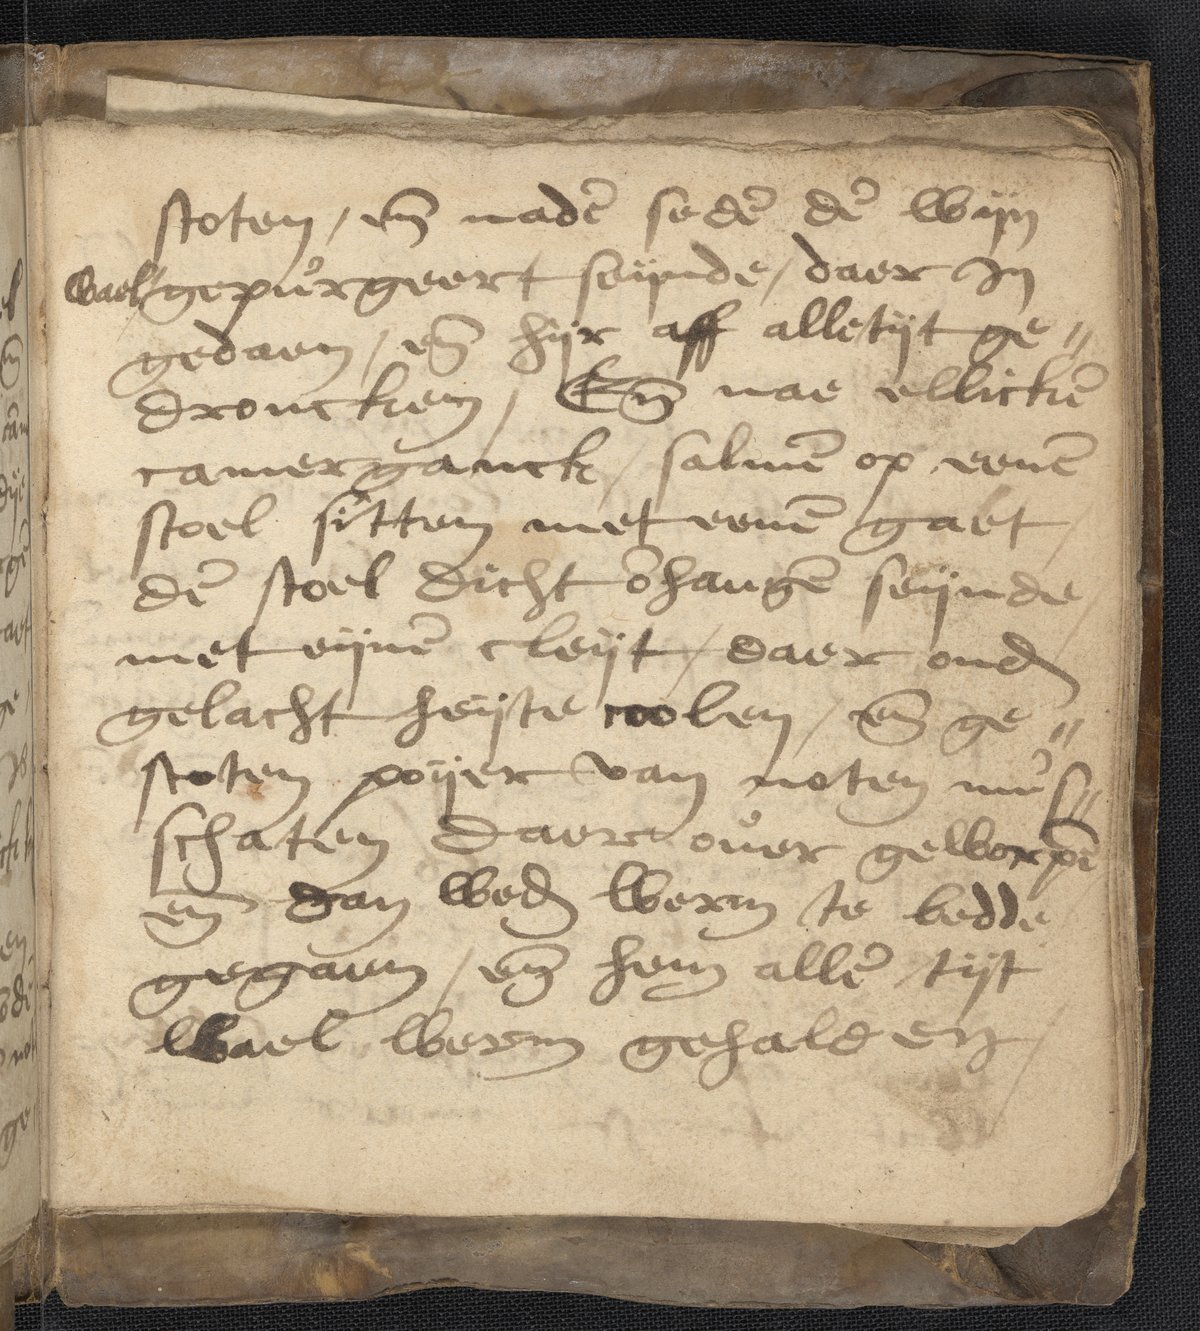 stoten / en̄ nadē sedē dē wijn
wael gepurgeert sijnde / daer in
gedaen / en̄ hijr aff alletijt ge=
droncken / En̄ nae ellickē
camerganck / salmē op eenē
stoel sitten met eenē gaet /
dē stoel dicht ōhangē sijnde /
met eijnē cleijt / daer ond
gelacht heijte coolen / en̄ ge=
stoten poijer van noten mus=
schaten daer ouer geworpē
en̄ dan wed werm te bedde
gegaen / en̄ hem allē tijt
wael werm gehalden /